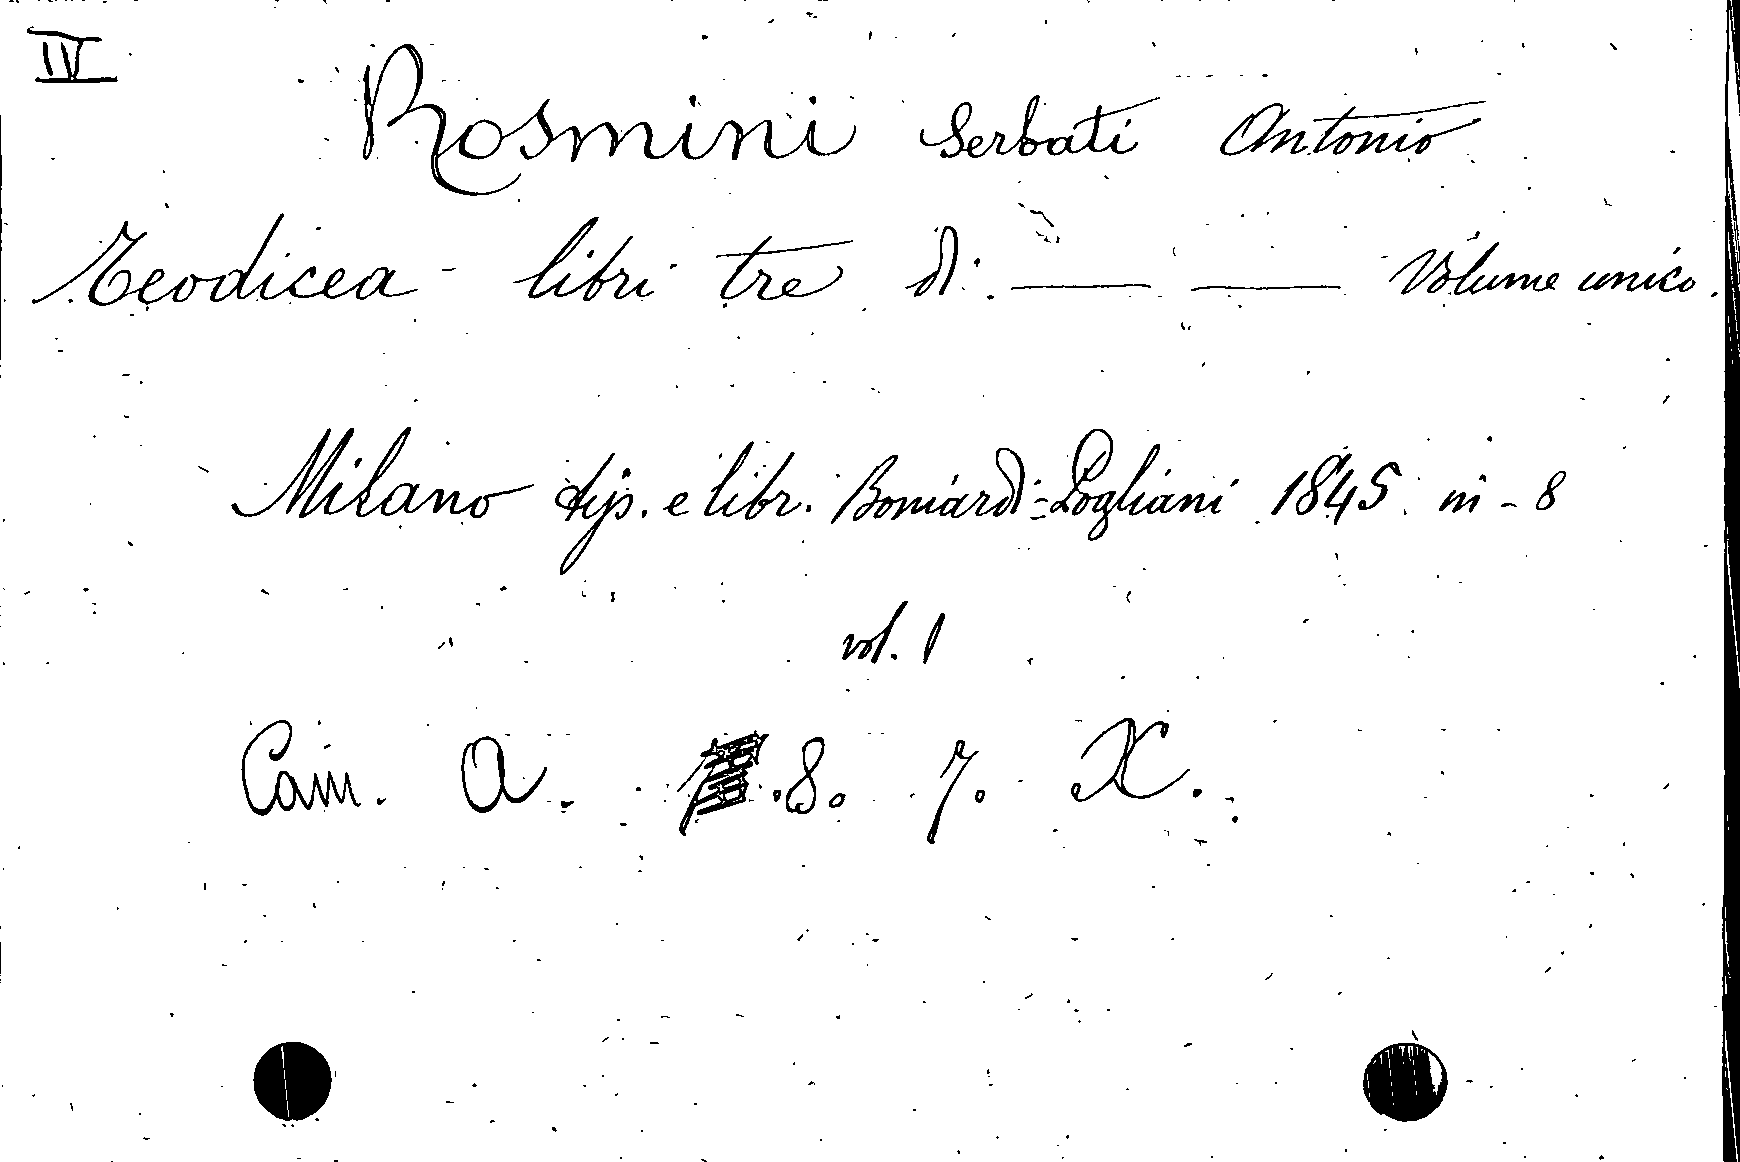 IV
Rosmini Serbati Antonio
Teodicea - libri tre di: — — Volume unico.
Milano tip. e libr. Boniardi=Pogliani 1845 in-8
vol. 1
Cam. A. .8. 7. X.